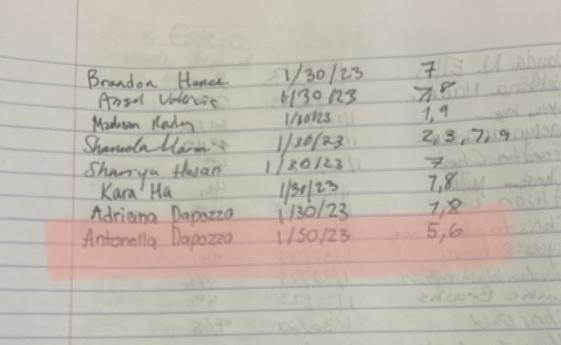 Brandon Hance 1/30/23 7
Angel Valencia 1/30/23 7,8
Madison 1/30/23 1,9
1/30/23 2,3,7,9
Shaniya Hasan 1/30/23 7
Kara Ha 1/31/23 7,8
Adriana Dapozzo 1/30/23 7,8
Antonella Dapozzo 1/30/23 5,6